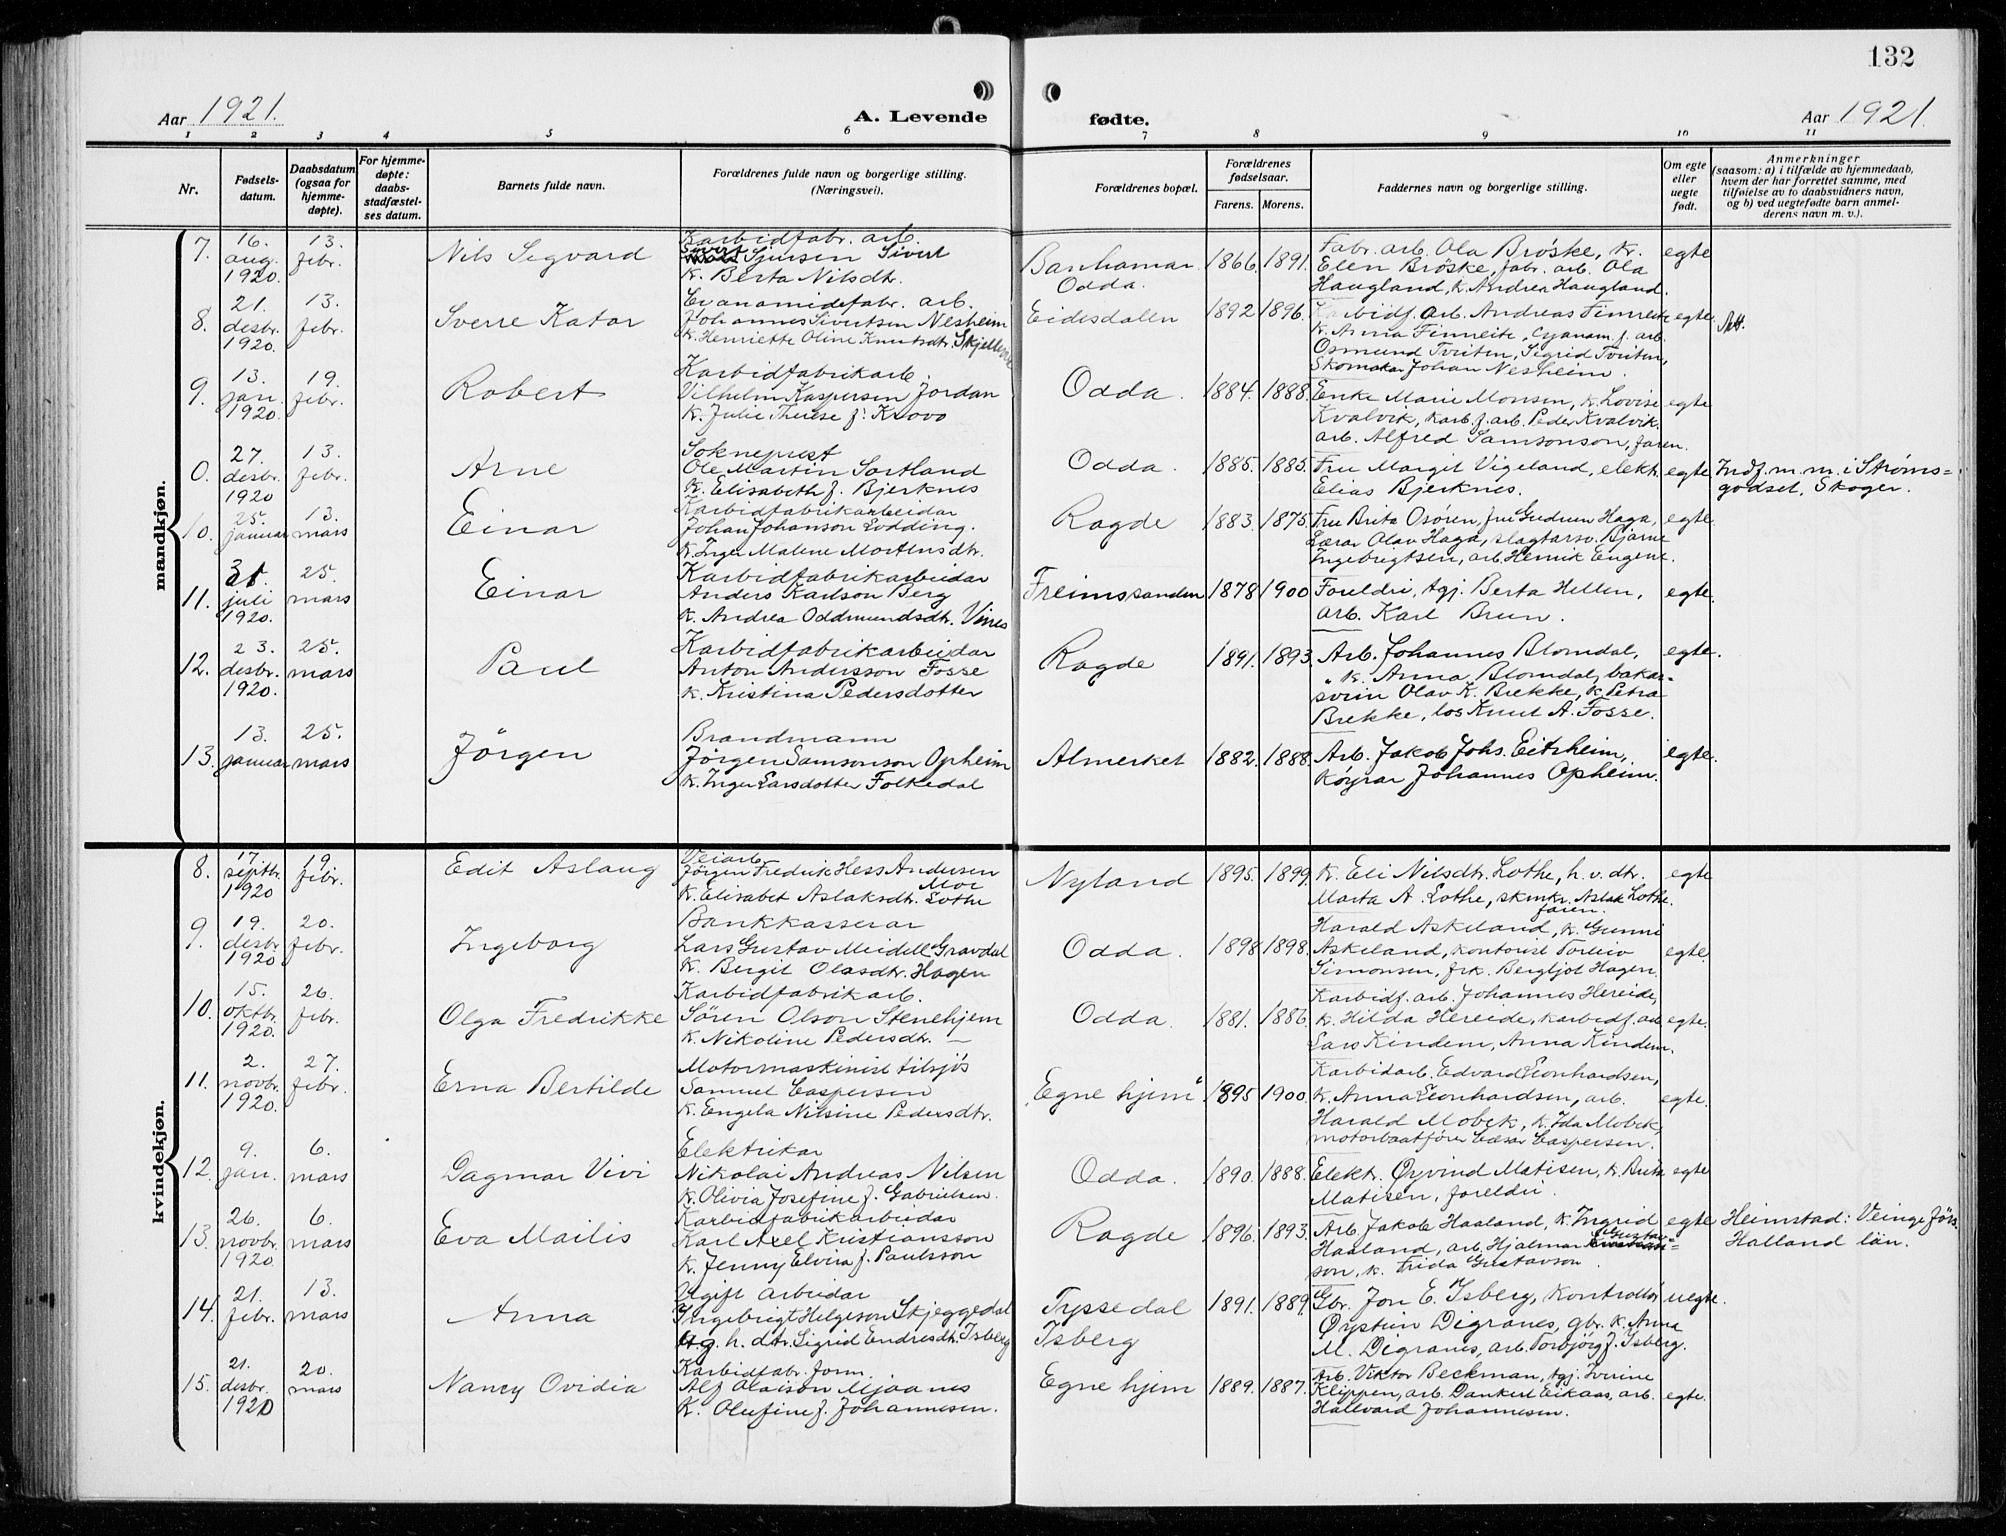 132
Aar 1921.
A. Levende fødte.
Aar 1921
1 2 3 4 5 6 7 8 9 10 11
Nr.
Fødsels-
datum.
Daabsdatum
(ogsaa for
hjemme-
døpte).
For hjemme-
døpte:
daabs-
stadfæstel-
ses datum.
Barnets fulde navn.
Forældrenes fulde navn og borgerlige stilling.
(Næringsvei).
Forældrenes bopæl.
Forældrenes
fødselsaar.
Farens. Morens.
Faddernes navn og borgerlige stilling.
Om egte
eller
uegte
født.
Anmerkninger
(saasom: a) i tilfælde av hjemmedaab,
hvem der har forrettet samme, med
tilføielse av to daabsvidners navn,
og b) ved uegtefødte barn anmel-
derens navn m. v.).
mandkjøn.
7.
16.
aug.
1920.
13.
febr.
Nils Segvard
Karbidfabr. arb.
Sjursen Sivert
K. Berta Nilsdt.
Banhamar
Odda.
1866. 1891.
Fabr. arb. Ola Brøske, K.
Elen Brøske, fabr. arb. Ola
Haugland, K. Andrea Haugland.
egte
8.
21.
desbr.
1920.
13.
febr.
Sverre Kator
Cyanamidefabr. arb.
Johannes Sivertsen Nesheim
K. Henriette Oline Knutsdt.
Eidesdalen
1892 1896.
Karbidf. arb. Andreas Finreite
K. Anna Finneite, Cyanam. f. arb.
Osmund Tveiten, Sigrid Tveiten,
Skomakar Johan Nesheim.
egte.
Att.
9.
13.
jan.
1920.
19.
febr.
Robert
Karbidfabrikarb.
Vilhelm Kaspersen Jordan
K. Julie Therese f. Krovo
Odda.
1884. 1888.
Enke Marie Monsen, K. Lovise
Kvalvik, Karb. f. arb. Peder Kvalvik,
arb. Alfred Samsonson, faren.
egte
0.
27.
desbr.
1920
13.
febr.
Arne
Sokneprest
Ole Martin Sortland
K. Elisabeth f. Bjerknes
Odda.
1885. 1885.
Fru Margit Vigeland, elekt.
Elias Bjerknes.
egte
Indf. m. m. i Strøms=
godset, Skoger.
10.
25.
januar
13.
mars
Einar
Karbidfabrikarbeidar
Johan Johanson Lodding.
K. Inger Malene Mortensdt.
Ragde
1883. 1875.
Fru Brita Osøren, fru Gudrun Haga,
Lærar Olav Haga, slagtarsv. Bjarne
Ingebrigtsen, arb. Henrik Eugene.
egte.
11.
31.
juli
1920.
25.
mars
Einar
Karbidfabrikarbeidar
Anders Karlson Berg
K. Andrea Oddmundsdt. Vines
Freimssanden
1878 1900
Foreldri, tgj. Berta Hellen,
arb. Karl Brun.
egte.
12.
23.
desbr.
1920.
25.
mars
Paul
Karbidfabrikarbeidar
Anton Andersson Fosse
K. Kristina Pedersdotter
Ragde
1891. 1893.
Arb. Johannes Blomdal,
K. Anna Blomdal, bakar-
svein Olav K. Brekke, K. Petra
Brekke, los Knut A. Fosse.
egte.
13.
13.
januar
25.
mars
Jörgen
Brandmann
Jörgen Samsonson Opheim
K. Inger Larsdotter Folkedal
Almerket
1882. 1888.
Arb. Jakob Johs. Eitrheim,
Køyrar Johannes Opheim.
egte.
kvindekjøn.
8.
17.
septbr.
1920
19.
febr.
Edit Aslaug
Veiarb.
Jörgen Fredrik Hess Andersen
Moe
K. Elisabet Aslaksdt. Lothe
Nyland
1895. 1899.
K. Eli Nilsdt. Lothe, h. v. dt.
Marta A. Lothe, Aslak Lothe.
faren.
egte
9.
19.
desbr.
1920
20.
febr.
Ingeborg
Bankkasserar
Lars Gustav Meidell Gravdal
K. Bergit Olasdt. Hagen
Odda.
1898 1898.
Harald Askeland, K. Gunni
Askeland, kontorist Torleiv
Simonsen, frk. Bergljot Hagen.
egte.
10.
15.
oktbr.
1920.
26.
febr.
Olga Fredrikke
Karbidfabrikarb.
Sören Olson Stenehjem
K. Nikoline Pedersdt. —
Odda.
1881. 1886.
Karbidf. arb. Johannes Hereide,
K. Hilda Hereide, Karbidf. arb
Lars Kindem, Anna Kindem.
egte.
11.
2.
novbr.
1920.
27.
febr.
Erna Bertilde
Motormaskinist tilsjøs
Samuel Caspersen
K. Engela Nilsine Pedersdt.
"Egne hjem"
1895 1900
Karbidarb. Edvard Leonhardsen,
K. Anna Leonhardsen, arb.
Harald Mobek, K. Ida Mobek,
motorbaatfører Cæsar Caspersen.
egte.
12.
9.
jan.
6.
mars
Dagmar Vivi
Elektrikar
Nikolai Andreas Nilsen
K. Olivia Josefine f. Gabrielsen.
Odda.
1890. 1888.
Elekt. Øyvind Matisen, K. Brita
Matisen, foreldri.
egte
13.
26.
novbr.
1920
6.
mars
Eva Mailis
Karbidfabrikarbeidar
Karl Axel Kristiansson
K. Jenny Elvira f. Paulsson
Ragde
1896. 1893.
Arb. Jakob Haaland, K. Ingrid
Haaland, arb. Hjalmar Gustav=
son, K. Frida Gustavson.
egte
Heimstad: Veinge förs.
Halland län.
14.
21.
febr.
13.
mars
Anna
Ugift arbeidar
Ingebrigt Helgeson Skjeggedal
Ug. h. dtr. Sigrid Endresdt. Isberg
Tyssedal
Isberg
1891. 1889.
Gbr. Jon E. Isberg, Kontrollør
Øystein Digranes, gbr. K. Anna
M. Digranes, arb. Torbjørg J. Isberg.
uegte.
15.
21.
desbr.
1920
20.
mars
Nancy Ovidia
Karbidfabr. form.
Alf Olaison Mjaanes
K. Olufine f. Johannesen.
Egne hjem
1889. 1887.
Arb. Viktor Beckman, tgj. Iverine
Klippen, arb. Dankert Eikaas, arb.
Hallvard Johannesen.
egte.